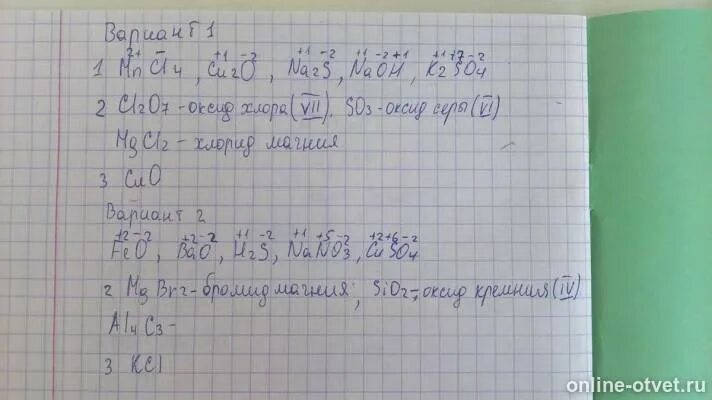 Вариант 1
1 Mn⁷⁺Cl⁻₄, Cu⁺¹₂O⁻², Na⁺¹₂S⁻², Na⁺¹O⁻²H⁺¹, K⁺¹₂S⁺⁷O⁻²₄
2 Cl₂O₇ - оксид хлора (VII). SO₃ - оксид серы (VI)
MgCl₂ - хлорид магния
3 CuO
Вариант 2
Fe⁺²O⁻², Ba⁺²O⁻², H⁺¹₂S⁻², Na⁺¹N⁺⁵O⁻²₃, Cu⁺²S⁺⁶O⁻²₄
2 MgBr₂ - бромид магния; SiO₂ - оксид кремния (IV)
Al₄C₃ -
3 KCl
online-otvet.ru